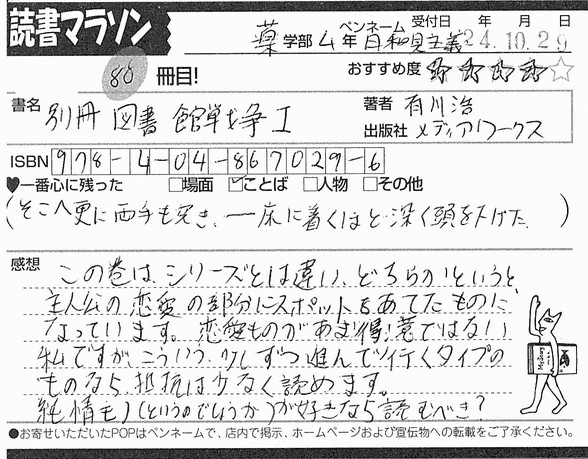 読書マラソン
薬学部 4年 ペンネーム 日和見主義 受付日 年 月 日
24.10.29
80 冊目!
おすすめ度 ☆☆☆☆☆
書名 別冊 図書館戦争 I
著者 有川浩
出版社 メディアワークス
ISBN 978-4-04-867029-6
♥一番心に残った □場面 ☑ことば □人物 □その他
(そこへ更に両手も突き、一床に着くほど深く頭を下げた。)
感想 この巻は、シリーズとは違い、どちらかというと
主人公の恋愛の部分にスポットをあてたものに
なっています。恋愛ものがあまり得意ではない
私ですが、こういう、少しずつ進んでいくタイプの
ものなら抵抗は少なく読めます。
純情モノ(というのでしょうか)が好きなら読むべき?
●お寄せいただいたPOPはペンネームで、店内で掲示、ホームページおよび宣伝物への転載をご了承ください。